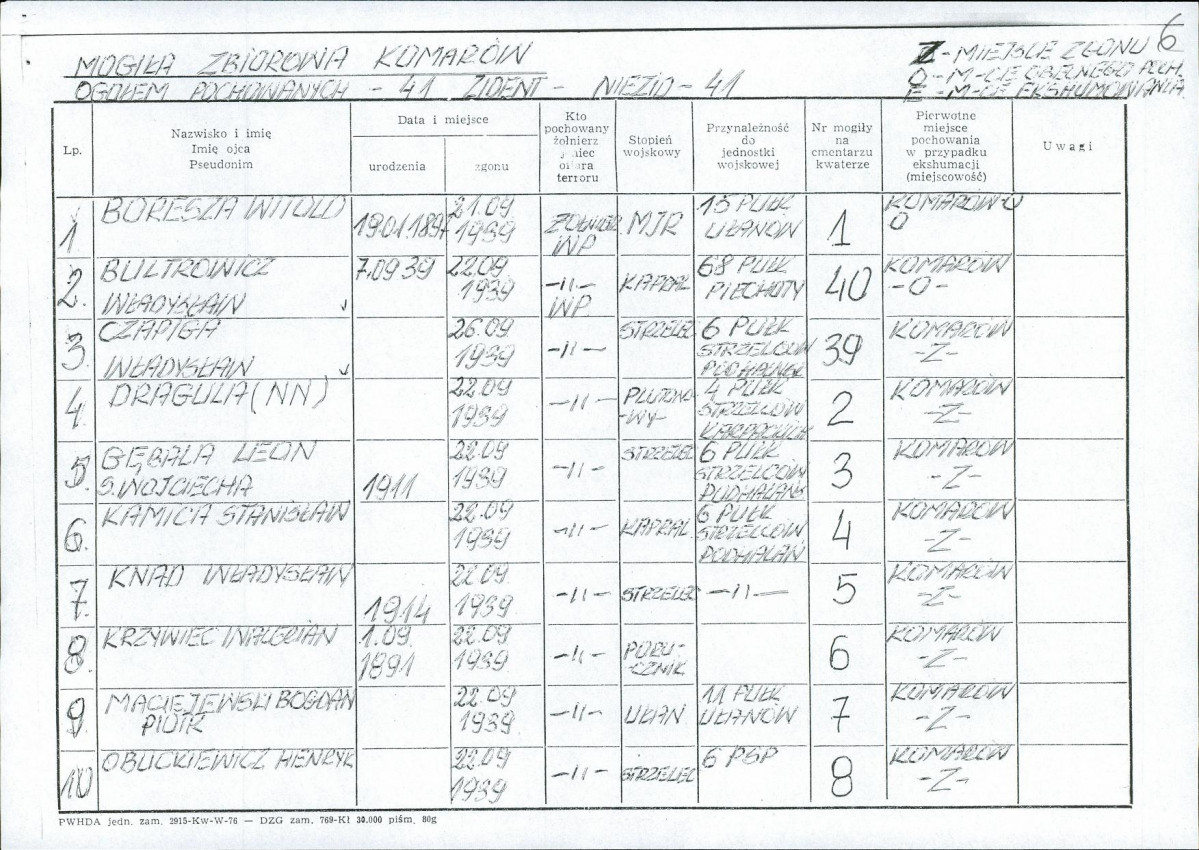 6
MOGIŁA ZBIOROWA KOMARÓW
OGÓŁEM POCHOWANYCH - 41 ZIDENT - NIEZID - 41
Z - MIEJSCE ZGONU
O - M-CIE OBECNEGO POCH.
E - M-CIE EKSHUMOWANIA
Lp.
Nazwisko i imię
Imię ojca
Pseudonim
Data i miejsce
urodzenia
zgonu
Kto
pochowany
żołnierz
jeniec
ofiara
terroru
Stopień
wojskowy
Przynależność
do
jednostki
wojskowej
Nr mogiły
na
cmentarzu
kwaterze
Pierwotne
miejsce
pochowania
w przypadku
ekshumacji
(miejscowość)
Uwagi
1. BORESZA WITOLD 19.01.1897 21.09 1939 ŻOŁNIERZ WP MJR 15 PUŁK UŁANÓW 1 KOMARÓW-O O
2. BULTROWICZ WŁADYSŁAW 7.09 39 22.09 1939 -II- WP KAPRAL 68 PUŁK PIECHOTY 40 KOMARÓW -O-
3. CZAPIGA WŁADYSŁAW 26.09 1939 -II- STRZELEC 6 PUŁK STRZELCÓW 39 KOMARÓW -Z-
4. DRAGULA (NN) 22.09 1939 -II- PLUTONO-WY- 4 PUŁK STRZELCÓW 2 KOMARÓW -Z-
5. GĘBALA LEON S. WOJCIECHA 1911 22.09 1939 -II- STRZELEC 6 PUŁK STRZELCÓW PODHALAŃS 3 KOMARÓW -Z-
6. KAMICA STANISŁAW 22.09 1939 -II- KAPRAL 6 PUŁK STRZELCÓW PODHALAN 4 KOMARÓW -Z-
7. KNAD WŁADYSŁAW 1914 22.09. 1939 -II- STRZELEC -II- 5 KOMARÓW -Z-
8. KRZYWIEC WALERIAN 1.09. 1891 22.09 1939 -II- PORU-CZNIK 6 KOMARÓW -Z-
9. MACIEJEWSKI BOGDAN PIOTR 22.09 1939 -II- UŁAN 11 PUŁK UŁANÓW 7 KOMARÓW -Z-
10 OBUCKIEWICZ HENRYK 22.09 1939 -II- STRZELEC 6 PSP 8 KOMARÓW -Z-
PWHDA jedn. zam. 2915-Kw-W-76 — DZG zam. 769-Kł 30.000 piśm. 80g